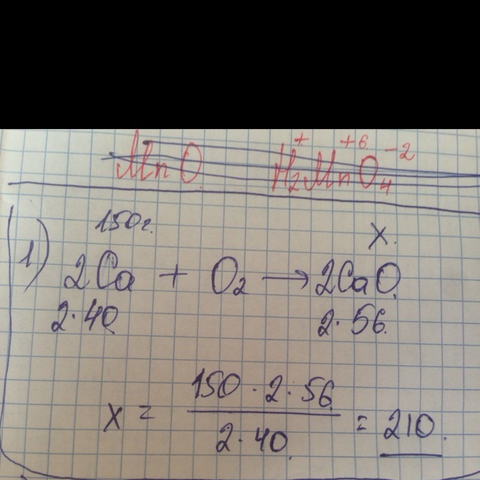 MnO H₂MnO₄ + +6 -2
150г. X.
1) 2Ca + O₂ → 2CaO.
2·40 2·56.
x = 150·2·56. / 2·40. = 210.